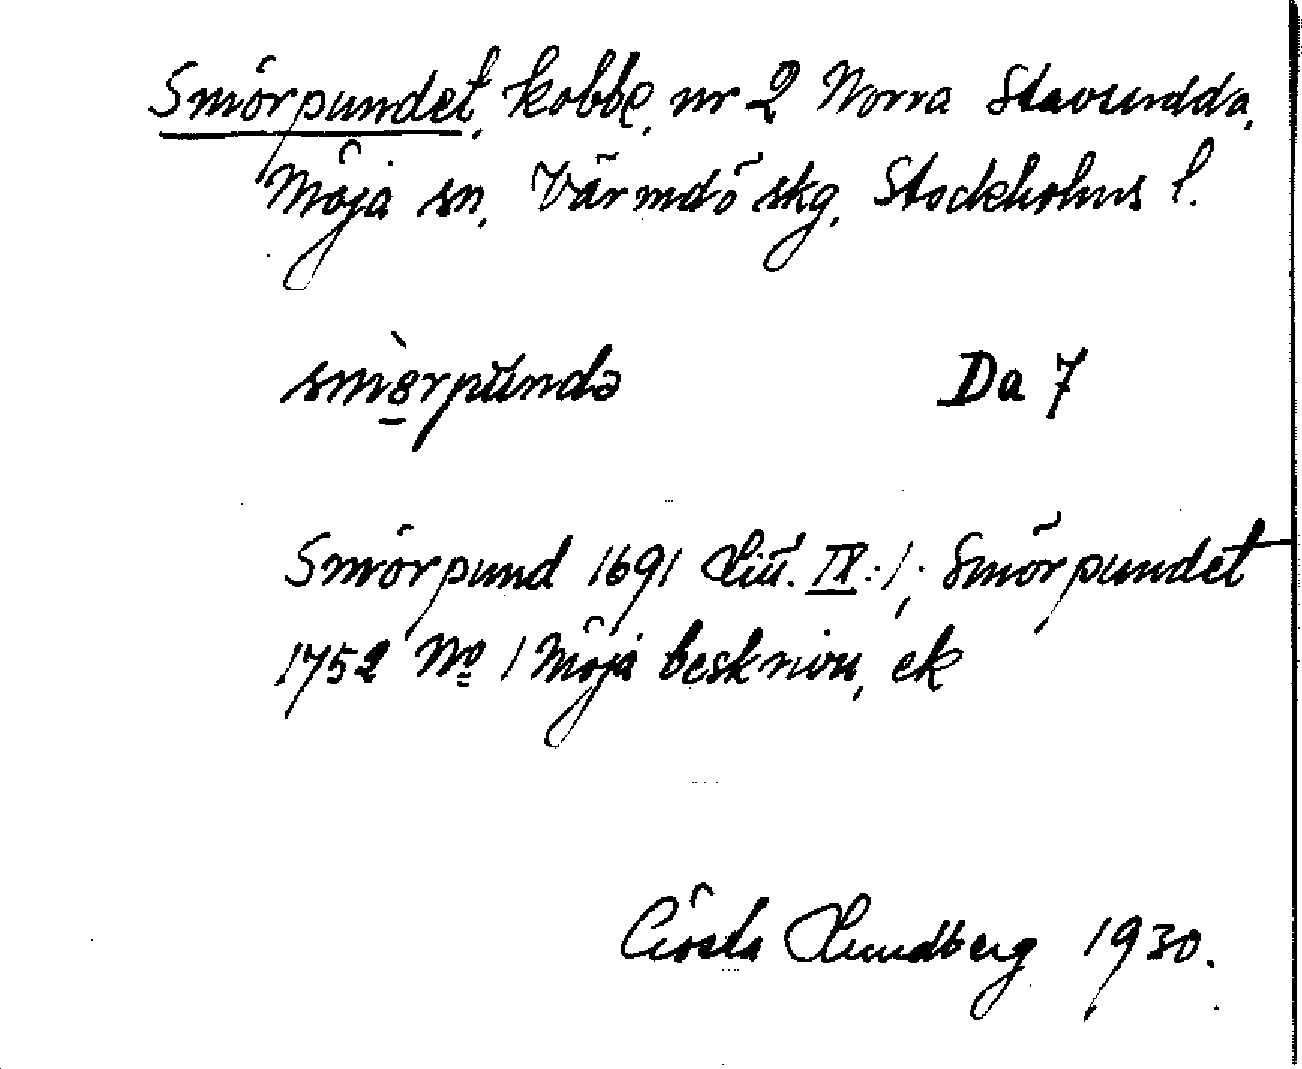 Smörpundet, kobbe, nr 2 Norra Stavsudda,
Möja sn, Värmdö skg, Stockholms l.
Da 7
Smörpund 1691 Litt. IX:1; Smörpundet
1752 No 1 Möja beskrivn, ek
Gösta Lundberg 1930.